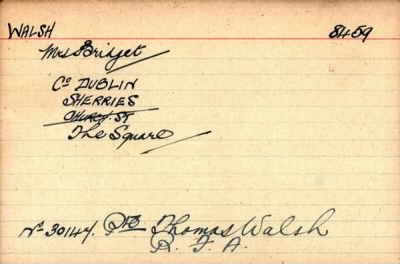 WALSH 8459
Mrs Bridget
Co DUBLIN
SHERRIES
CHURCH ST
The Square
No 30144. Pte Thomas Walsh
R. F. A.